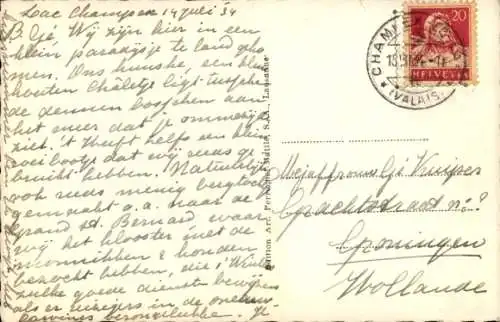 Lac Champex 14 Juli '34
B. Ijé. Wij zijn hier in een
klein paradijsje te land geko
men. Ons huuske, een klein
houten Châletje ligt tusschen
de dennen bosschen aan
het meer dat je ommezijde
ziet. 't Heeft zelfs een klein
roeibootje dat wij reeds ge
bruikt hebben. Natuurlijk
ook reeds menig bergtochtje
gemaakt o.a. naar de
Grand St. Bernard waar
wij het klooster met de
monniken & honden
bezocht hebben, die 's Winters
zulke goede diensten bewijzen
als er reizigers in de
Edition Art. Perrochet-Matile, S.A.L., Lausanne
CHAMPEX
(VALAIS)
20
HELVETIA
Mejuffrouw Ijé Kuiper
Grachtstraat
Groningen
Hollande